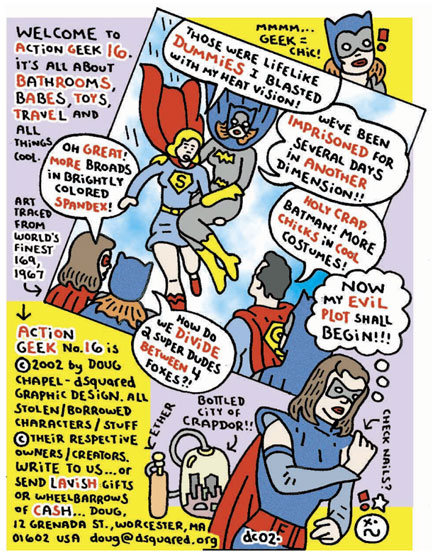 WELCOME TO
ACTION GEEK 16.
IT'S ALL ABOUT
BATHROOMS,
BABES, TOYS,
TRAVEL AND
ALL
THINGS
COOL.
MMMM...
GEEK =
CHIC!
THOSE WERE LIFELIKE
DUMMIES I BLASTED
WITH MY HEAT VISION!
WE'VE BEEN
IMPRISONED FOR
SEVERAL DAYS
IN ANOTHER
DIMENSION!!
OH GREAT!
MORE BROADS
IN BRIGHTLY
COLORED
SPANDEX!
S
HOLY CRAP,
BATMAN! MORE
CHICKS IN COOL
COSTUMES!
ART
TRACED
FROM
WORLD'S
FINEST
169,
1967
HOW DO
WE DIVIDE
2 SUPER DUDES
BETWEEN 4
FOXES?!
NOW
MY EVIL
PLOT SHALL
BEGIN!!!
ACTION
GEEK No.16 IS
©2002 by DOUG
CHAPEL - dSQUARED
GRAPHIC DESIGN. ALL
STOLEN/BORROWED
CHARACTERS / STUFF
© THEIR RESPECTIVE
OWNERS/CREATORS.
WRITE TO US...OR
SEND LAVISH GIFTS
OR WHEELBARROWS
OF CASH... DOUG,
12 GRENADA ST., WORCESTER, MA
01602 USA doug@dsquared.org
ETHER
BOTTLED
CITY OF
CRAPDOR!!
CHECK NAILS?
dc02.